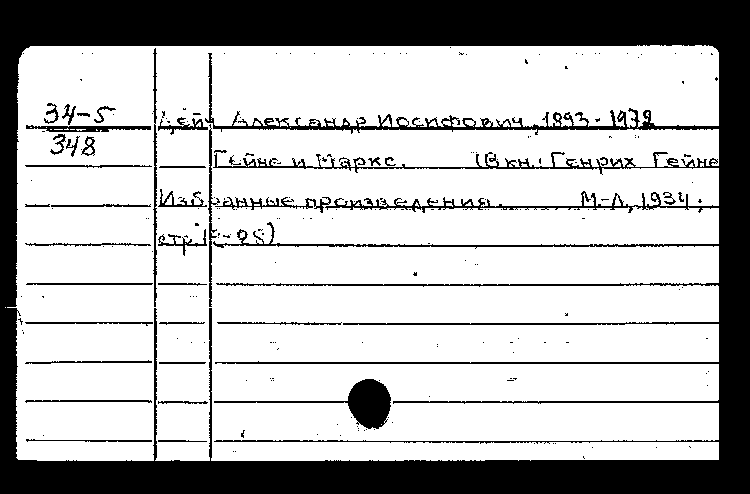 34-5
348
Дейч Александр Иосифович, 1893-1972
Гейне и Маркс. (В кн.: Генрих Гейне
Избранные произведения. М-Л, 1934;
стр.